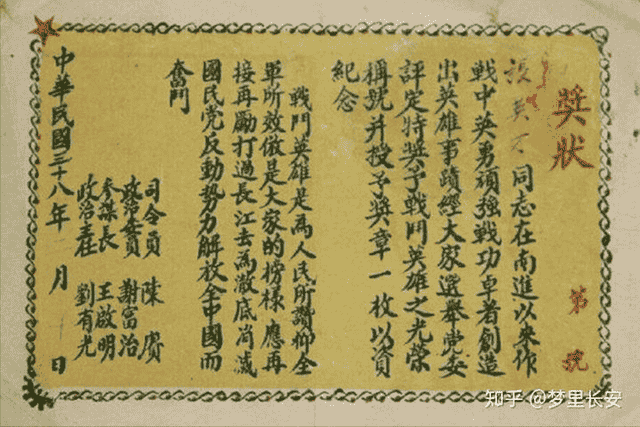 獎狀
第 號
同志在南進以來作
戰中英勇頑強戰功卓著創造
出英雄事蹟經大家選舉党委
評定特奬予戰鬥英雄之光荣
稱號并授予奬章一枚以資
紀念
戰鬥英雄是為人民所讚仰全
軍所效倣是大家的榜樣應再
接再勵打過長江去為澈底消滅
國民党反動勢力解放全中國而
奮鬥
司令員 陳賡
政治委員 謝富治
參謀長 王啟明
政治主任 劉有光
中華民國三十八年 月 日
知乎 @梦里长安